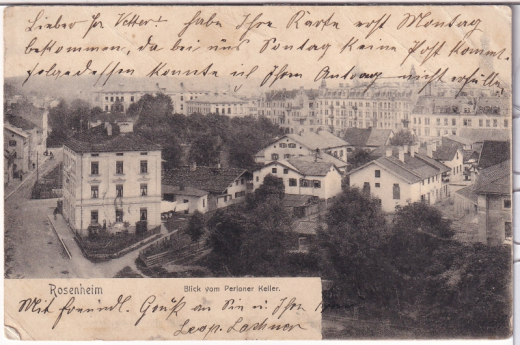 Lieber Hr Vetter! habe Ihre Karte erst Montag
bekommen, da bei uns Sontag keine Post kommt.
folgedessen konnte ich Ihrem Antrag nicht erfülle
Rosenheim
Blick vom Perloner Keller.
Mit freundl. Gruß an Sie u Ihre
Leop. Lachner